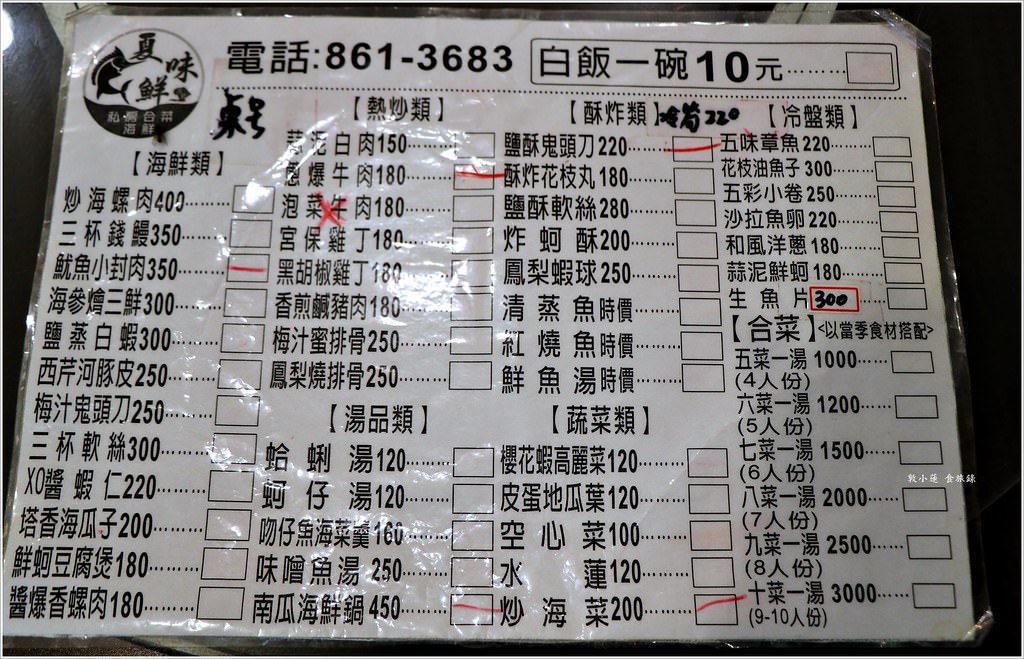 夏味鮮
私房合菜
海鮮
電話:861-3683
白飯一碗10元……
桌号
【海鮮類】
炒海螺肉400
三杯錢鰻350
魷魚小封肉350
海參燴三鮮300
鹽蒸白蝦300
西芹河豚皮250
梅汁鬼頭刀250
三杯軟絲300
XO醬蝦仁220
塔香海瓜子200
鮮蚵豆腐煲180
醬爆香螺肉180
【熱炒類】
蒜泥白肉150
蔥爆牛肉180
泡菜牛肉180
宮保雞丁180
黑胡椒雞丁180
香煎鹹豬肉180
梅汁蜜排骨250
鳳梨燒排骨250
【湯品類】
蛤蜊湯120
蚵仔湯120
吻仔魚海菜羹160
味噌魚湯250
南瓜海鮮鍋450
【酥炸類】
筍220
鹽酥鬼頭刀220
酥炸花枝丸180
鹽酥軟絲280
炸蚵酥200
鳳梨蝦球250
清蒸魚時價
紅燒魚時價
鮮魚湯時價
【蔬菜類】
櫻花蝦高麗菜120
皮蛋地瓜葉120
空心菜100
水蓮120
炒海菜200
【冷盤類】
五味章魚220
花枝油魚子300
五彩小卷250
沙拉魚卵220
和風洋蔥180
蒜泥鮮蚵180
生魚片300
【合菜】<以當季食材搭配>
五菜一湯1000
(4人份)
六菜一湯1200
(5人份)
七菜一湯1500
(6人份)
八菜一湯2000
(7人份)
九菜一湯2500
(8人份)
十菜一湯3000
(9-10人份)
敦小蓮 食旅錄